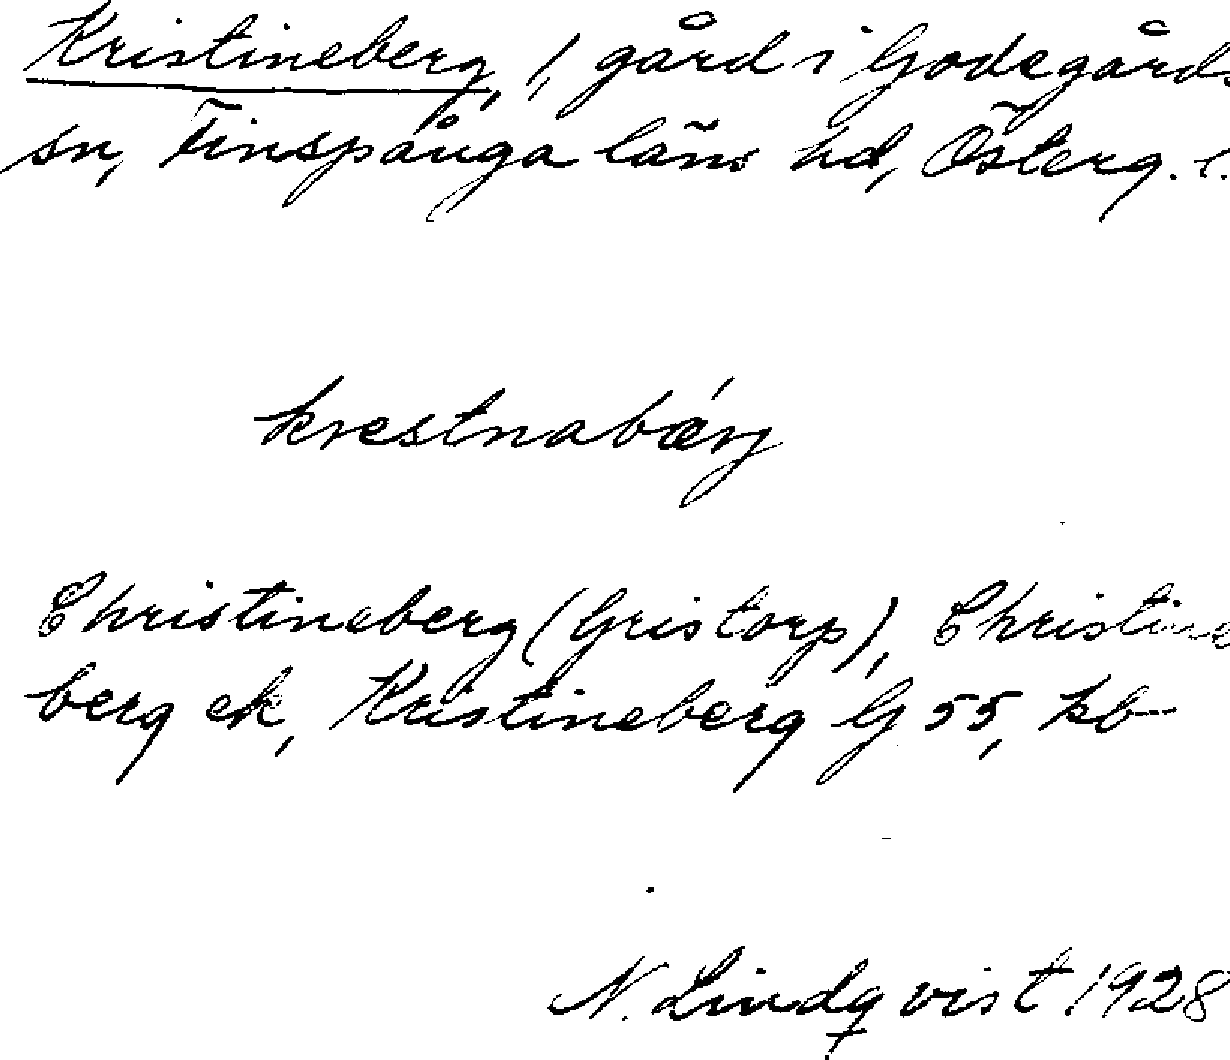 Kristineberg, 1, gård i Godegårds
sn, Finspånga läns hd, Österg. l.
krestnabǽrj
Christineberg (Gristorp), Christine
berg ek, Kristineberg G 55, kb
N. Lindqvist 1928